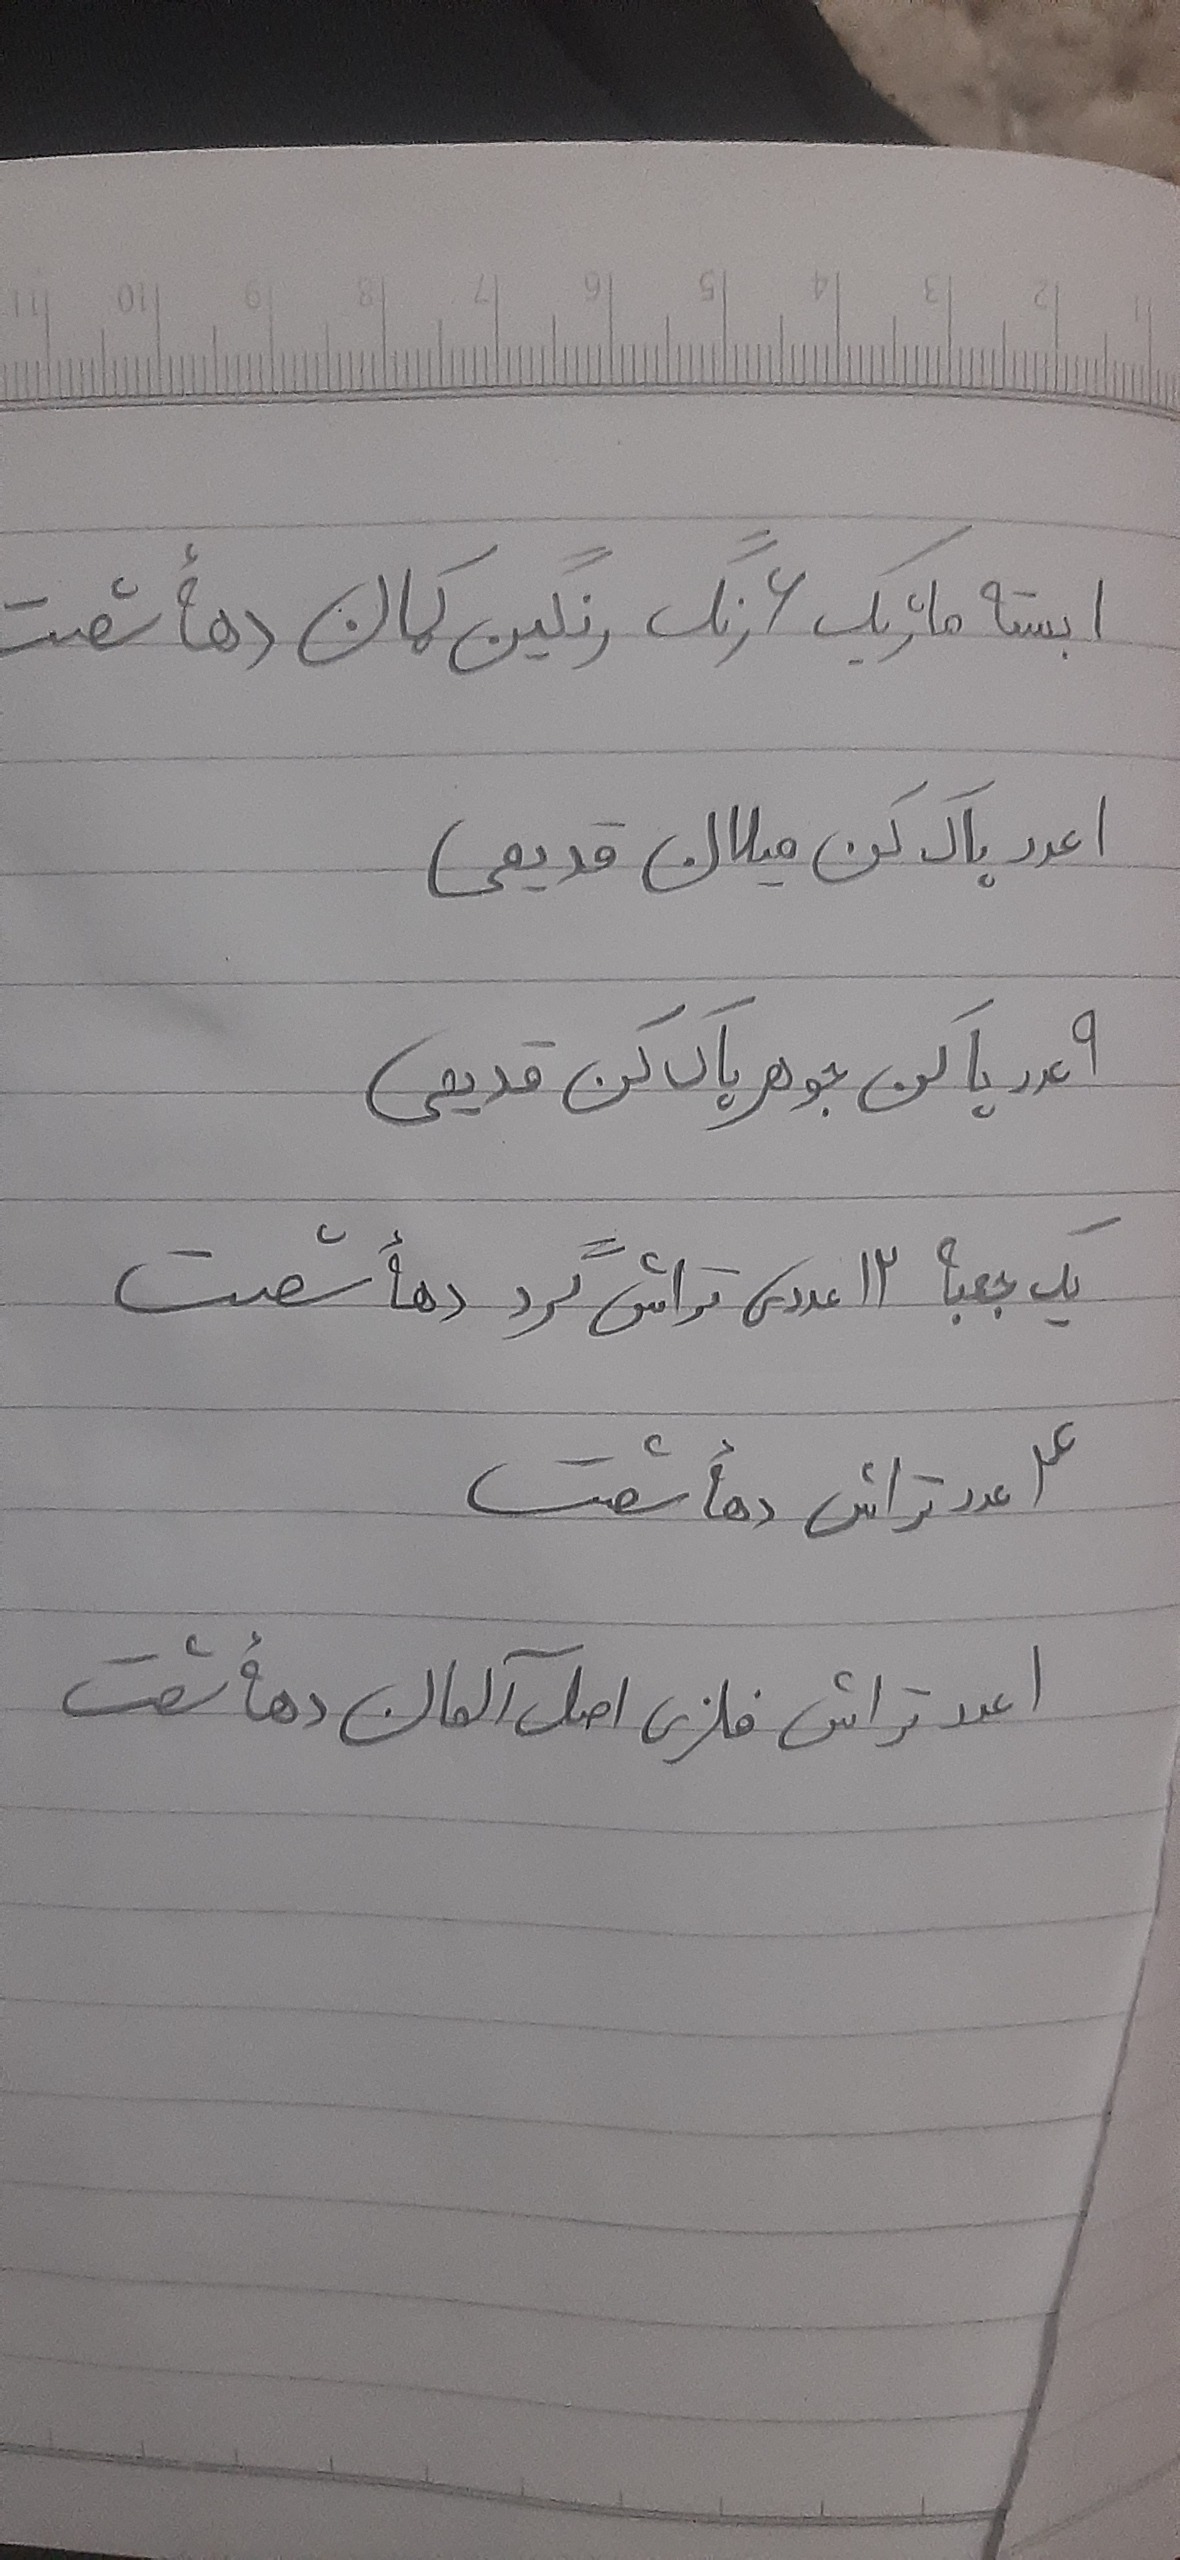 11 10 9 8 7 6 5 4 3 2 1
۱ بسته ماژیک ۶ رنگ رنگین کمان دههٔ شصت
۱ عدد پاک کن میلان قدیمی
۹ عدد پا کن جوهر پاک کن قدیمی
یک جعبهٔ ۱۲ عددی تراش گرد دههٔ شصت
۴ عدد تراش دههٔ شصت
۱ عدد تراش فلزی اصل آلمان دههٔ شصت